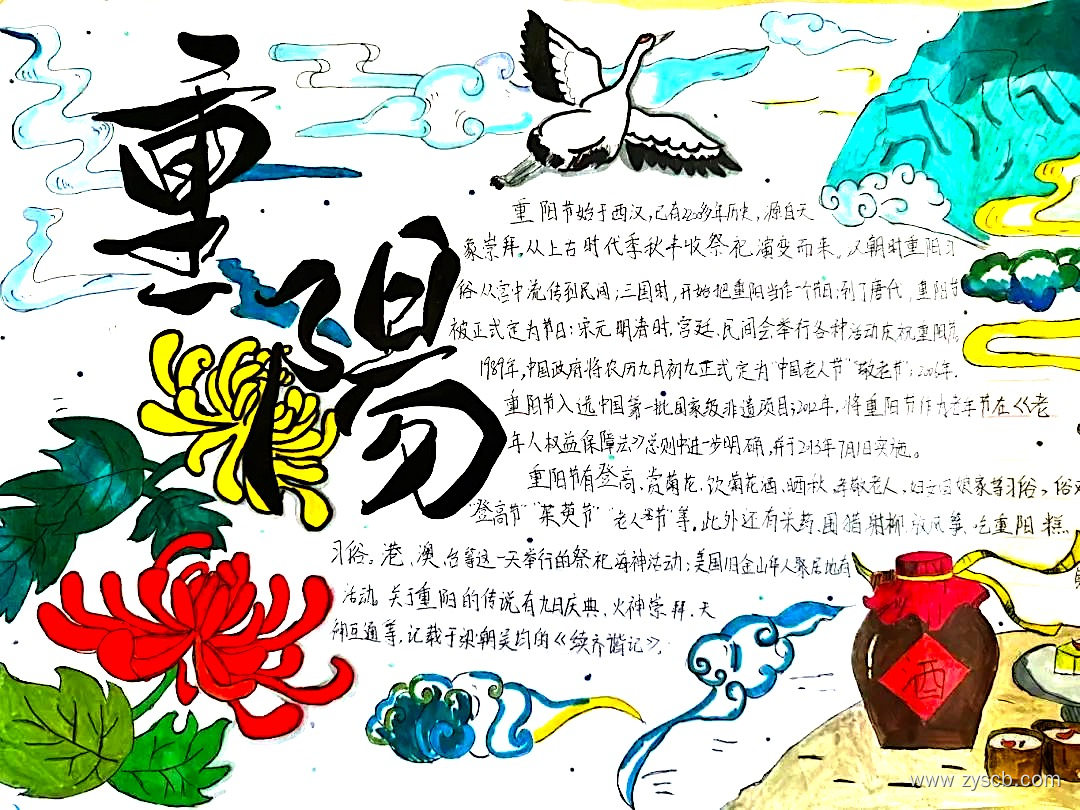 重
陽
重阳节始于西汉,已有2000多年历史,源自天
象崇拜,从上古时代季秋丰收祭祀演变而来。汉朝时重阳习
俗从宫中流传到民间;三国时,开始把重阳当作一个节日;到了唐代,重阳节
被正式定为节日;宋元明清时,宫廷、民间会举行各种活动庆祝重阳节
1989年,中国政府将农历九月初九正式定为"中国老人节""敬老节";2006年.
重阳节入选中国第一批国家级非遗项目;2012年,将重阳节作为老年节在《老
年人权益保障法》总则中进一步明确,并于2013年7月1日实施。
重阳节有登高、赏菊花、饮菊花酒、晒秋、 敬老人、妇女回娘家等习俗。俗
"登高节""茱萸节""老人节"等,此外还有 围猎射柳、放风筝、吃重阳糕
习俗。港、澳、台等这一天举行的祭祀海神活动;美国旧金山华人聚居地有
活动。关于重阳的传说有九日庆典、火神崇拜、天
师 等,记载于梁朝吴均的《续齐谐记》.
酒
www.zyscb.com